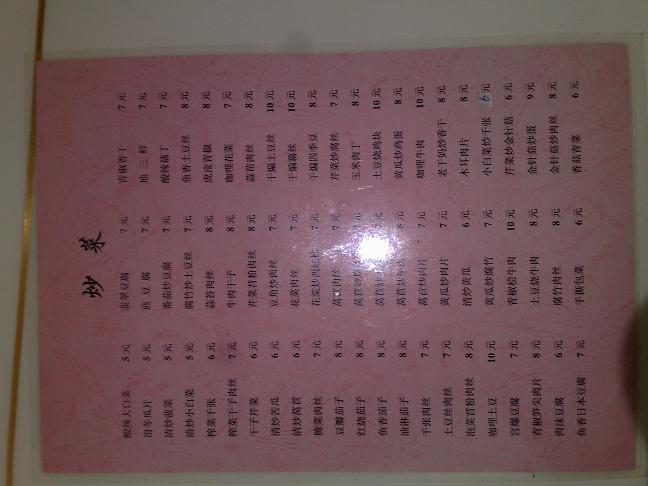 炒 菜
酸辣大白菜 5元 衷旱豆腐 7元 青椒香干 7元
滑冬瓜片 5元 煎豆腐 7元 地三鲜 7元
清炒菠菜 5元 番茄炒豆腐 7元 酸辣藕丁 7元
清炒小白菜 5元 腐竹炒土豆丝 7元 鱼香土豆丝 8元
榨菜千张 6元 蒜苔肉丝 8元 虎皮青椒 8元
榨菜干子肉丝 7元 牛肉干子 8元 咖哩花菜 7元
干子芹菜 6元 芹菜苕粉肉丝 8元 蒜苗肉丝 8元
清炒苦瓜 6元 豆角炒肉丝 7元 干煸土豆丝 10元
清炒莴苣 6元 花菜肉丝 7元 干煸藕丝 10元
脆菜肉丝 7元 花菜炒西红柿 7元 干煸四季豆 8元
豆瓣茄子 8元 莴苣肉丝 7元 芹菜炒腐丝 7元
红烧茄子 8元 莴苣炒 7元 玉米肉丁 8元
鱼香茄子 8元 莴苣炒 土豆烧鸡块 10元
油淋茄子 8元 莴苣炒牛肉 8元 黄瓜炒鸡蛋 8元
千张肉丝 7元 莴苣炒肉片 7元 咖哩牛肉 10元
土豆丝肉丝 7元 黄瓜炒肉片 7元 老干妈炒香干 8元
泡菜苕粉肉丝 8元 清炒黄瓜 6元 木耳肉片 8元
咖哩土豆 10元 黄瓜炒腐竹 7元 小白菜炒千张 6元
宫爆豆腐 7元 青椒桧牛肉 10元 芹菜炒金针菇 6元
青椒笋尖肉片 8元 土豆烧牛肉 8元 金针菇炒蛋 9元
肉沫豆腐 6元 腐竹肉丝 8元 金针菇炒肉丝 8元
鱼香日本豆腐 7元 手撕包菜 6元 香菇青菜 6元